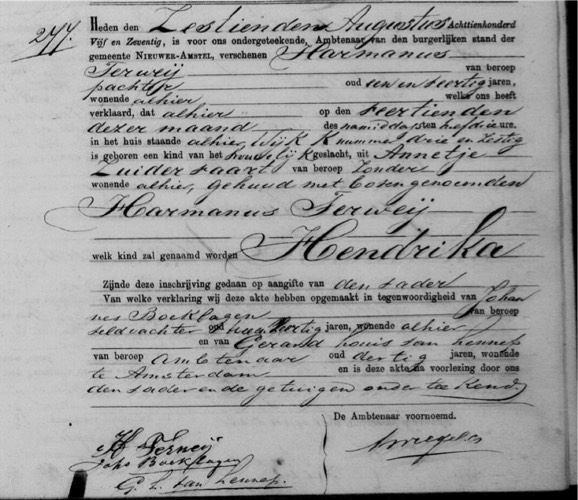 277.
Heden den Zestienden Augustus Achttienhonderd
Vijf en Zeventig, is voor ons ondergeteekende, Ambtenaar van den burgerlijken stand der
gemeente NIEUWER-AMSTEL, verschenen Harmanus
Terweij van beroep
pachter oud een en veertig jaren,
wonende alhier welke ons heeft
verklaard, dat alhier op den veertienden
dezer maand des namiddags ten half drie ure.
in het huis staande alhier, Wijk K nummer drie en zestig
is geboren een kind van het vrouwelijk geslacht, uit Annetje
Zuidervaart van beroep zonder
wonende alhier, gehuwd met bovengenoemden
Harmanus Terweij
welk kind zal genaamd worden Hendrika
Zijnde deze inschrijving gedaan op aangifte van den vader
Van welke verklaring wij deze akte hebben opgemaakt in tegenwoordigheid van Johan
nes Boeklagen van beroep
veldwachter oud veertig jaren, wonende alhier
en van Gerard Louis van Lennep
van beroep Ambtenaar oud dertig jaren, wonende
te Amsterdam en is deze akte na voorlezing door ons
den vader en de getuigen onderteekend
De Ambtenaar voornoemd.
H Terweij
Johs Boeklagen
G. L. van Lennep.